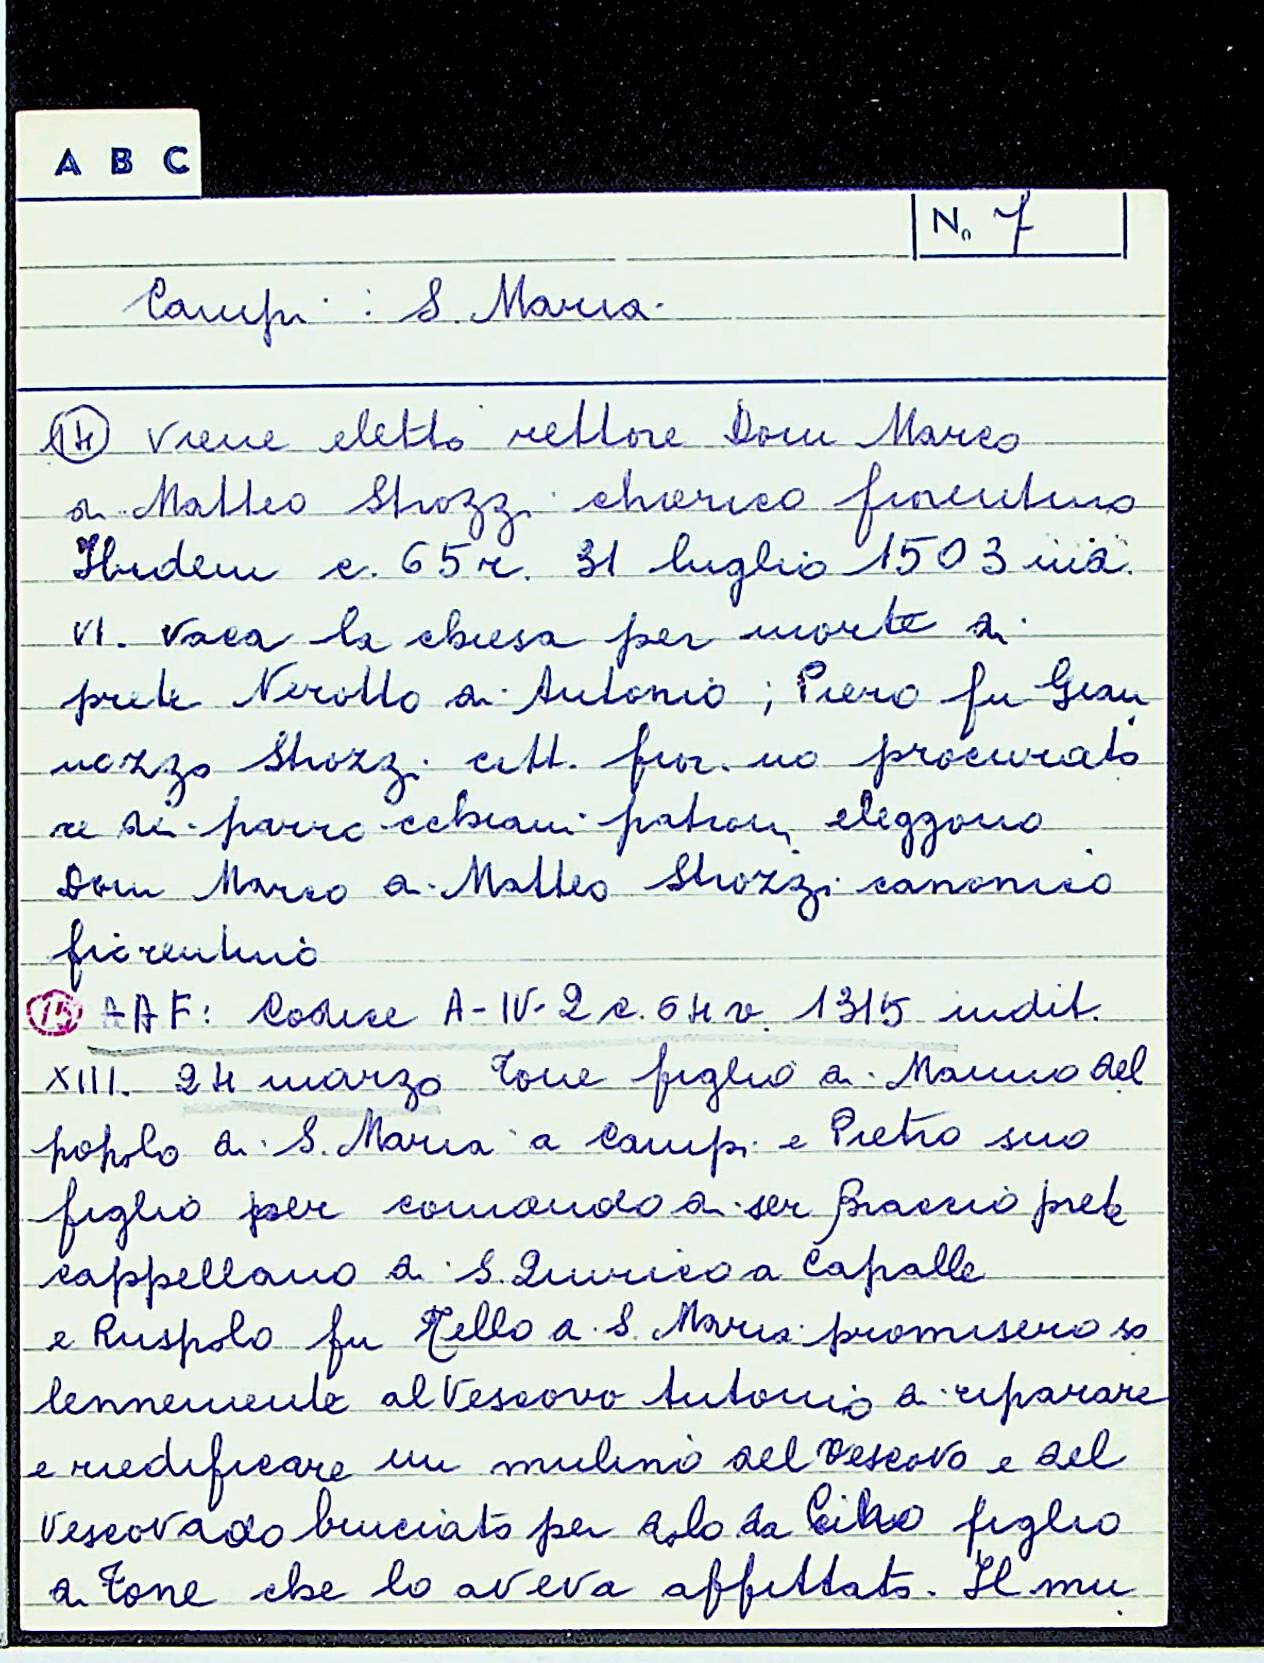 A B C
N. 7
Campi : S. Maria.
14 viene eletto rettore Dom Marco
di Matteo Strozzi chierico fiorentino
Ibidem c. 65 r. 31 luglio 1503 ind.
VI. vaca la chiesa per morte di
prete Nerotto di Antonio ; Piero fu Gian
nozzo Strozzi citt. fior. no procurato
re dei parrocchiani patroni eleggono
Dom Marco di Matteo Strozzi canonico
fiorentino
15 AAF: Codice A-IV-2 c. 64 v. 1315 indit.
XIII. 24 marzo Tone figlio di Manno del
popolo di S. Maria a Campi e Pietro suo
figlio per comando di ser Braccio prete
cappellano di S. Quirico a Capalle
e Ruspolo fu Tello di S. Maria promisero so
lennemente al Vescovo Antonio di riparare
e riedificare un mulino del Vescovo e del
Vescovado bruciato per dolo da Cino figlio
di Tone che lo aveva affittato. Il mu